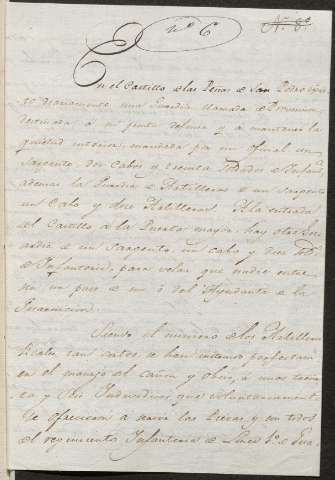 Nº 6
Nº 8º
En el Castillo de las Peñas de San Pedro
diariamente una Guardia llamada de Prevencion,
destinada a su pronta defensa y a mantener la
quietud interior, mandada por un oficial un
Sargento, dos Cabos y treinta Soldados de Infan
ademas la Guardia de Artilleros de un Sargento
un Cabo y doce Artilleros. A la entrada
del Castillo a la Puerta mayor hay otra Gu
ardia de un Sargento, un cabo y diez
de Infanteria, para velar que nadie entre
sin un pase de mi ó del Ayudante de la
Guarnicion.
Siendo el numero de los Artilleros
Reales tan cortos, se han
en el manejo del cañon y obus, a unos
ta y Seis Individuos que voluntariamente
se ofrecieron a servir las Piezas, y son todos
del regimiento Infanteria de Linea 1º de